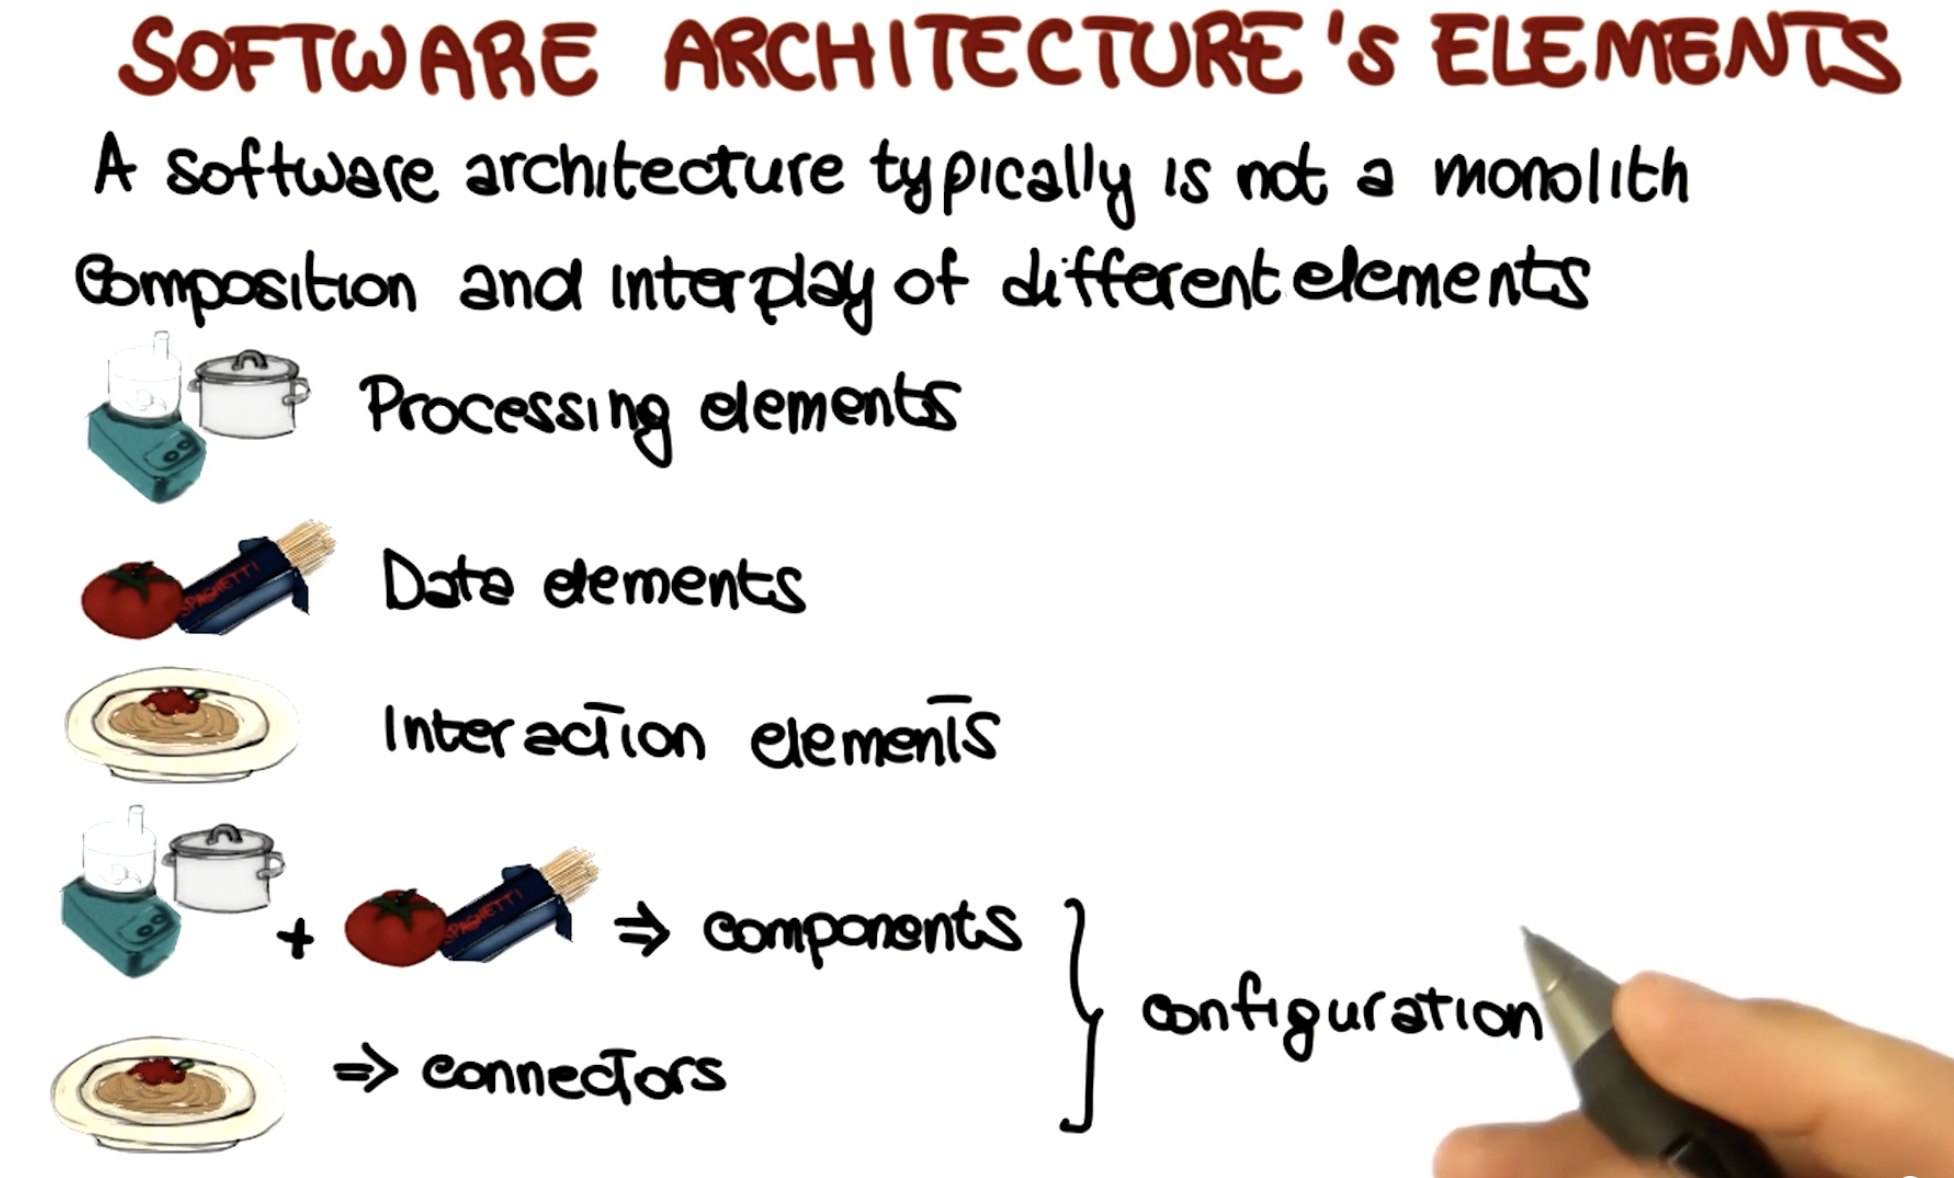 SOFTWARE ARCHITECTURE'S ELEMENTS
A software architecture typically is not a monolith
Composition and interplay of different elements
Processing elements
SPAGHETTI
Data elements
Interaction elements
+ SPAGHETTI ⇒ components
configuration
⇒ connectors